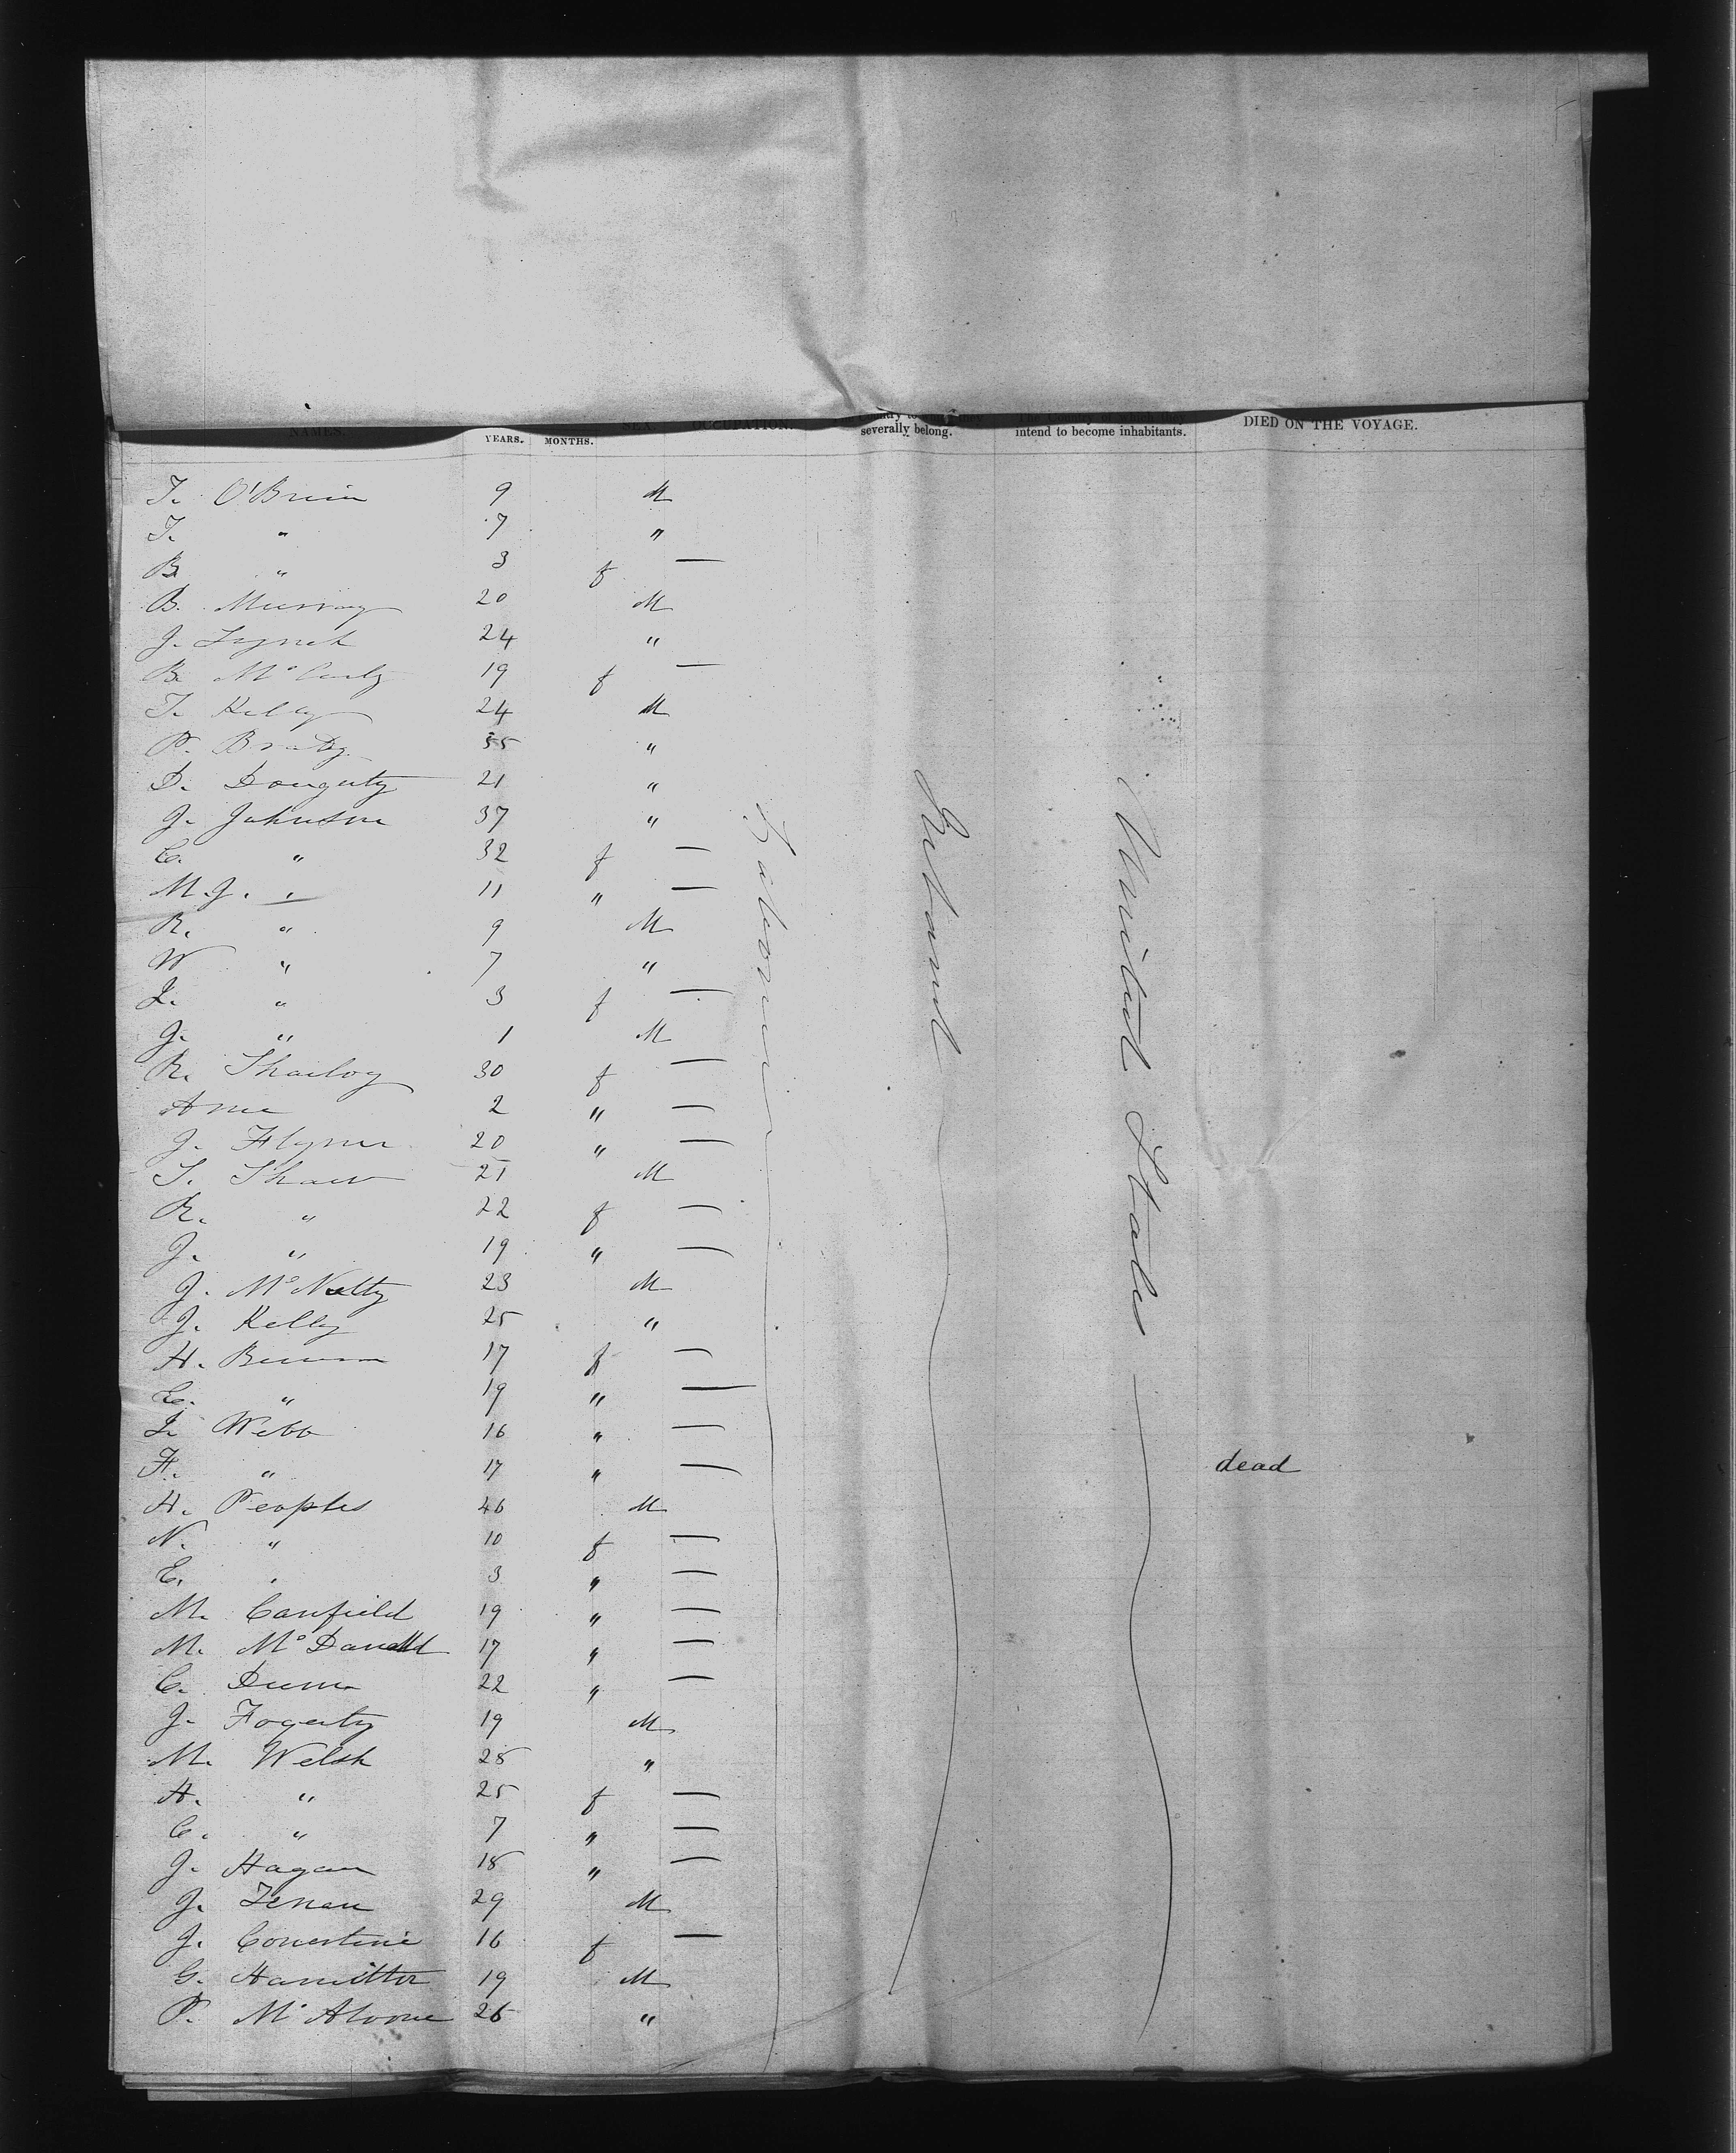 NAMES. YEARS. MONTHS. SEX. OCCUPATION. severally belong. intend to become inhabitants. DIED ON THE VOYAGE.
T. O'Brien 9 M
T. " 7 "
B " 3 f —
B. Murray 20 M
J. Lynch 24 "
B. McCarty 19 f —
T. Kelly 24 M
P. Brady 55 "
D. Dougerty 21 "
J. Johnson 37 "
C. " 32 f —
M.J. " 11 " —
R. " 9 M
W " 7 "
J. " 3 f —
J. " 1 M
R. 30 f —
Ann 2 " —
J. Flynn 20 " —
T. Shaw 21 M
R. " 22 f —
J. " 19 " —
J. McNulty 23 M
J. Kelly 25 "
H. 17 f —
C. " 19 " —
J. Webb 16 " —
F. " 17 " — dead
H. Peoples 46 M
N. " 10 f —
E. " 3 " —
M. Canfield 19 " —
M. 17 " —
C. Dunn 22 " —
J. Fogerty 19 M
M. Welsh 28 "
A. " 25 f —
C. " 7 " —
J. Hagan 18 " —
J. 29 M
J. 16 f —
G. Hamilton 19 M
P. 26 "
Labourer
Ireland
United States